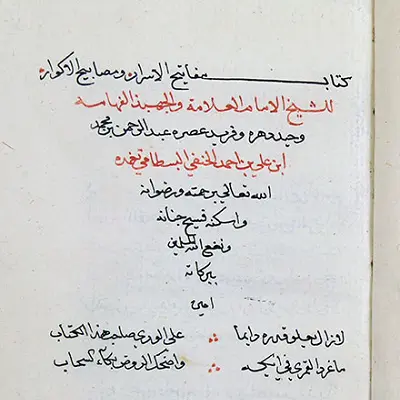 كتاب مفاتيح الاسرار ومصابيح الاكوار
للشيخ الامام العلامة والجهبذ الفهامه
وحيد دهره وفريد عصره عبد الرحمن بن محمد
ابن علي بن احمد الحنفي البسطامي تغمده
الله تعالي برحمته ورضوانه
واسكنه فسيح جنانه
ونفع الله المسلمين
ببركاته
امين
لا تزال يعلو قدره دايما على الوري صاحب هذا الكتاب
ما غرد القمري في ايكه واضحك الروض بكاء السحاب